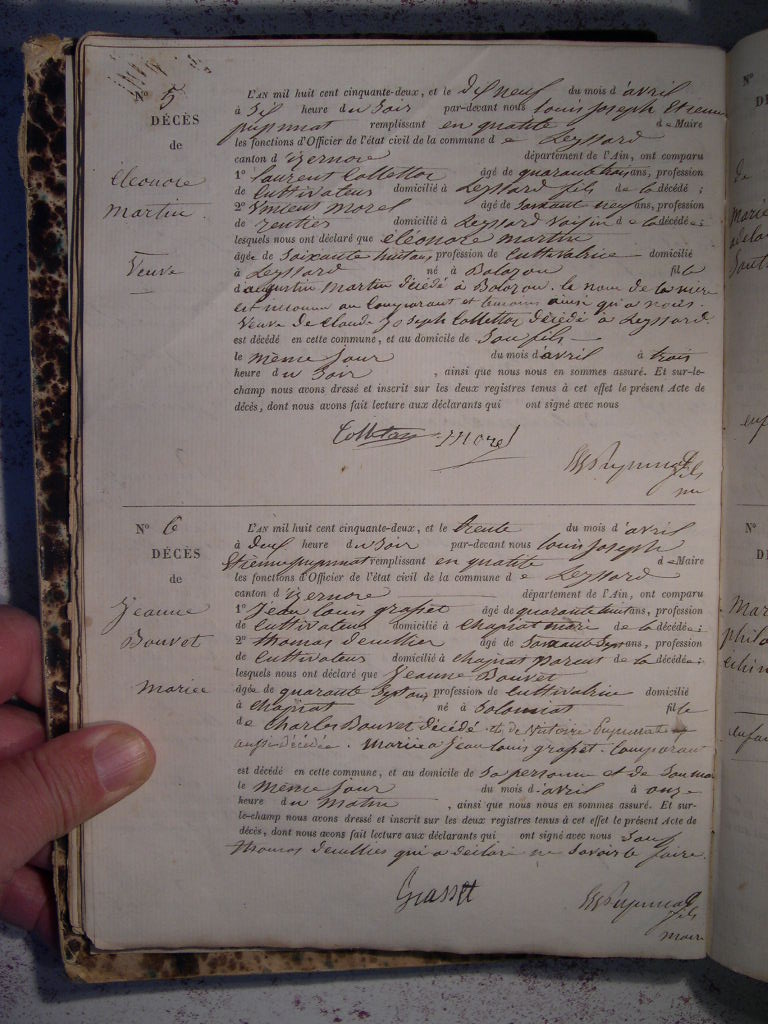 N° 5
DÉCÈS
de
éléonore
Martin
Veuve
L'AN mil huit cent cinquante-deux, et le dix neuf du mois d'avril
à Six heure du Soir par-devant nous Louis Joseph Etienne
pupunat remplissant en qualité de Maire
les fonctions d'Officier de l'état civil de la commune de Leyssard
canton d'izernore département de l'Ain, ont comparu
1° Laurent Collettaz âgé de quarante trois ans, profession
de Cultivateur domicilié à Leyssard fils de la décédé ;
2° Vincient Morel âgé de Soixante neuf ans, profession
de rentier domicilié à Leyssard Voisin de la décédée;
lesquels nous ont déclaré que éléonore martin
âgée de Soixante huit ans profession de Cultivatrice domicilié
à Leyssard né à Bolozon fille
d'augustin Martin décédé à Bolozon. le nom de la mère
est inconnu au Comparant et temoins ainsi qu'a nous.
Veuve de Claude Joseph Collettaz décédé à Leyssard.
est décédé en cette commune, et au domicile de Son fils
le même jour du mois d'avril à trois
heure du Soir , ainsi que nous nous en sommes assuré. Et sur-le-
champ nous avons dressé et inscrit sur les deux registres tenus à cet effet le présent Acte de
décès, dont nous avons fait lecture aux déclarants qui ont signé avec nous
Collettaz Morel
Pupunat
fils
N° 6
DÉCÈS
de
Jeanne
Bouvet
mariée
L'AN mil huit cent cinquante-deux, et le trente du mois d'avril
à deux heure du Soir par-devant nous Louis Joseph
Etienne pupunat remplissant en qualité de Maire
les fonctions d'Officier de l'état civil de la commune de Leyssard
canton d'izernore département de l'Ain, ont comparu
1° Jean Louis grasset âgé de quarante huit ans, profession
de Cultivateur domicilié à Chapiat mari de la décédée;
2° thomas âgé de Soixante Sept ans, profession
de Cultivateur domicilié à chapiat Parent de la décédée;
lesquels nous ont déclaré que Jeanne Bouvet
âgée de quarante Sept ans profession de Cultivatrice domicilié
à Chapiat né à Solomiat fille
de Charles Bouvet décédé et de Victoire Pupunat
aussi décédée. mariée a Jean Louis grasset. Comparant
est décédé en cette commune, et au domicile de Sa personne et de Son mari
le même jour du mois d'avril à onze
heure du Matin , ainsi que nous nous en sommes assuré. Et sur-
le-champ nous avons dressé et inscrit sur les deux registres tenus à cet effet le présent Acte de
décès, dont nous avons fait lecture aux déclarants qui ont signé avec nous Sauf
thomas qui a déclaré ne Savoir le faire.
Grasset
Pupunat
fils
maire